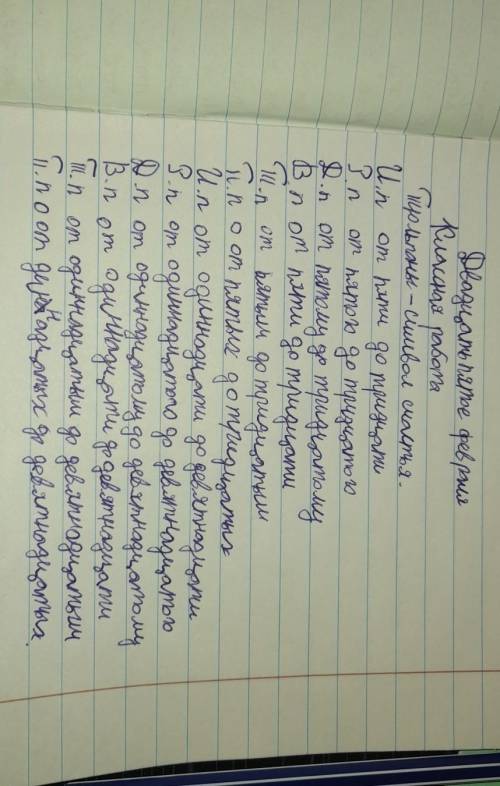 Двадцать пяте февраля
Классная работа
Тюльпанек - символ счастья.
И.п от пяти до тридцати
Р.п от пятого до тридцатого
Д.п от пятому до тридцатому
В.п от пяти до тридцати
Т.п от пятым до тридцатым
П.п о от пятных до тридцатых
И.п от одиннадцати до девятнадцати
Р.п от одиннадцатого до девятнадцатого
Д.п от одиннадцатому до девятнадцатому
В.п от одиннадцати до девятнадцати
Т.п от одиннадцатым до девятнадцатым
П.п о от до девятнадцатых.